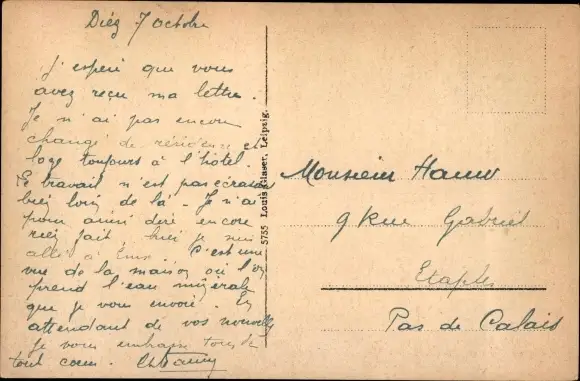 Diéz 7 octobre
J'espère que vous
avez reçu ma lettre.
Je n'ai pas encore
changé de résidence et
loge toujours à l'hôtel.
Le travail n'est pas écrasant
bien loin de là. Je n'ai
pour ainsi dire encore
rien fait. hier je suis
allé à Ems. C'est une
vue de la maison où l'on
prend l'eau minérale
que je vous envoie. En
attendant de vos nouvelles
je vous embrasse tous de
tout coeur.
5755 Louis Glaser, Leipzig.
Monsieur
9 Rue Gabriel
Etaples
Pas de Calais